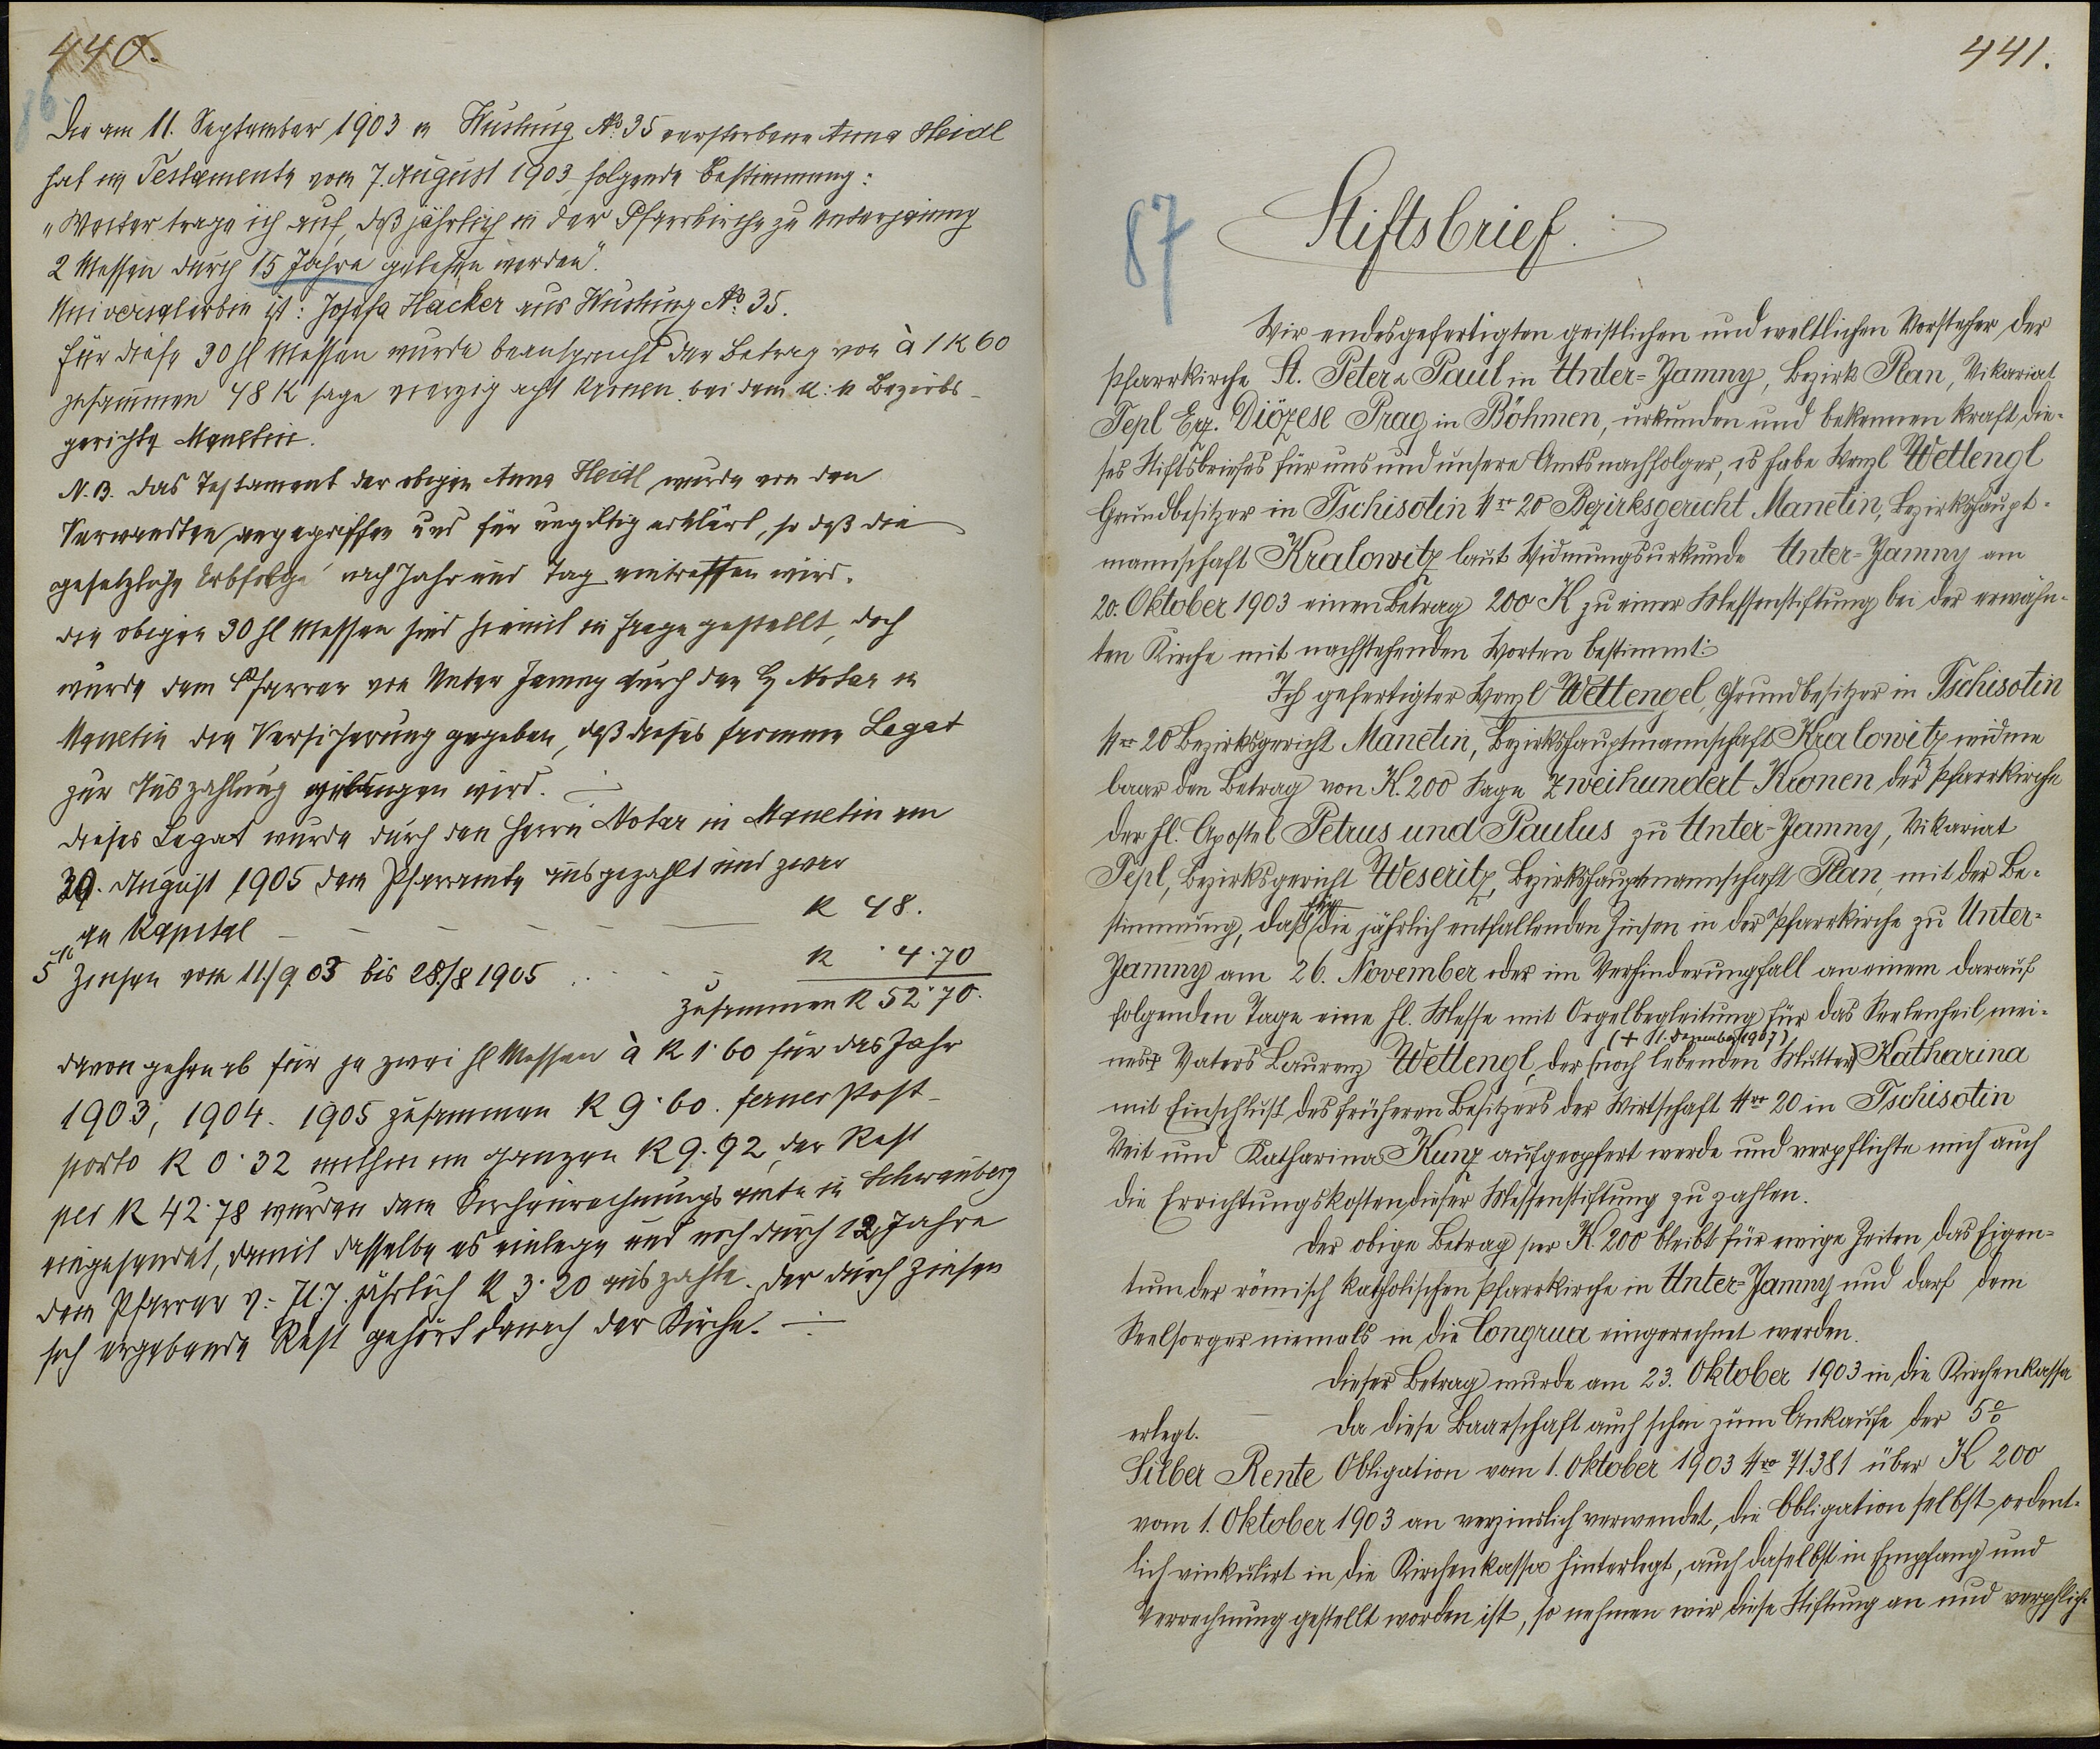 440.
86.
Die am 11. September 1903 in Wustung No. 35 verstorbene Anna Heidl
hat im Testamente vom 7. August 1903 folgende Bestimmung:
"Weiter trage ich auf, daß jährlich in der Pfarrkirche zu Unterjamny
2 Messen durch 15 Jahre gelesen werden".
Universalerbin ist: Josefa Hacker aus Wustung No. 35.
Für diese 30 hl Messen wurde beansprucht der Betrag von à 1 K 60
zusammen 48 K sage vierzig acht Kronen bei dem k: k Bezirks-
gerichte Manetin.
N.B. Das Testament der obigen Anna Heidl wurde von den
Verwandten angegriffen und für ungiltig erklärt, so daß die
gesetzliche Erbfolge nach Jahr und Tag eintreffen wird.
Die obigen 30 hl Messen sind hiemit in Frage gestellt, doch
wurde dem Pfarrer von Unter Jamny durch den H Notar in
Manetin die Versicherung gegeben, daß dieses fromme Legat
zur Auszahlung gelangen wird.
Dieses Legat wurde durch den Herrn Notar in Manetin am
30. August 1905 dem Pfarramte ausgezahlt und zwar
an Kapital K 48.
5% Zinsen vom 11./9 03 bis 28./8 1905 K 4·70
Zusammen K 52·70.
davon gehen ab für je zwei hl Messen à K 1·60 für das Jahr
1903, 1904. 1905 zusammen K 9·60. ferner Post-
porto K 0·32 mithin im ganzen K 9·92, der Rest
per K 42·78 wurden dem Kirchenrechnungsamte in Schwanberg
eingesendet, damit dasselbe es einlege und noch durch 12 Jahre
dem Pfarrer v. U. J. jährlich K 3·20 auszahle. Der durch Zinsen
sich ergebende Rest gehört danach der Kirche.
441.
87
Stiftsbrief.
Wir endesgefertigten geistlichen und weltlichen Vorsteher der
Pfarrkirche St. Peter & Paul in Unter-Jamny, Bezirk Plan, Vikariat
Tepl Erz. Diözese Prag in Böhmen, urkunden und bekennen kraft die-
ses Stiftsbriefes für uns und unsere Amtsnachfolger, es habe Wenzl Wettengl
Grundbesitzer in Tschisotin Nro 20 Bezirksgericht Manetin, Bezirkshaupt-
mannschaft Kralowitz laut Widmungsurkunde Unter-Jamny am
20. Oktober 1903 einen Betrag 200 K zu einer Messenstiftung bei der erwähn-
ten Kirche mit nachstehenden Worten bestimmt:
Ich gefertigter Wenzl Wettengel, Grundbesitzer in Tschisotin
Nro 20 Bezirksgericht Manetin, Bezirkshauptmannschaft Kralowitz widme
baar den Betrag von K. 200 sage Zweihundert Kronen der Pfarrkirche
der hl. Apostel Petrus und Paulus zu Unter-Jamny, Vikariat
Tepl, Bezirksgericht Weseritz, Bezirkshauptmannschaft Plan, mit der Be-
stimmung, daß für die jährlich entfallenden Zinsen in der Pfarrkirche zu Unter-
Jamny am 26. November oder im Verhinderungsfall an einem darauf
folgenden Tage eine hl. Messe mit Orgelbegleitung für das Seelenheil mei-
(+ 11. Dezember 1907)
nes + Vaters Laurenz Wettengl, der (noch lebenden Mutter) Katharina
mit Einschluß des früheren Besitzers der Wirtschaft Nro 20 in Tschisotin
Veit und Katharina Kunz aufgeopfert werde und verpflichte mich auch
die Errichtungskosten dieser Messenstiftung zu zahlen.
Der obige Betrag per K. 200 bleibt für ewige Zeiten das Eigen-
tum der römisch katholischen Pfarrkirche in Unter-Jamny und darf dem
Seelsorger niemals in die Congrua eingerechnet werden.
Dieser Betrag wurde am 23. Oktober 1903 in die Kirchenkassa
erlegt. Da diese Baarschaft auch schon zum Ankaufe der 5%
Silber Rente Obligation vom 1. Oktober 1903 Nro 71.381 über K 200
vom 1. Oktober 1903 an verzinslich verwendet, die Obligation selbst ordent-
lich vinkulirt in die Kirchenkassa hinterlegt, auch daselbst in Empfang und
Verrechnung gestellt worden ist, so nehmen wir diese Stiftung an und verpflich-